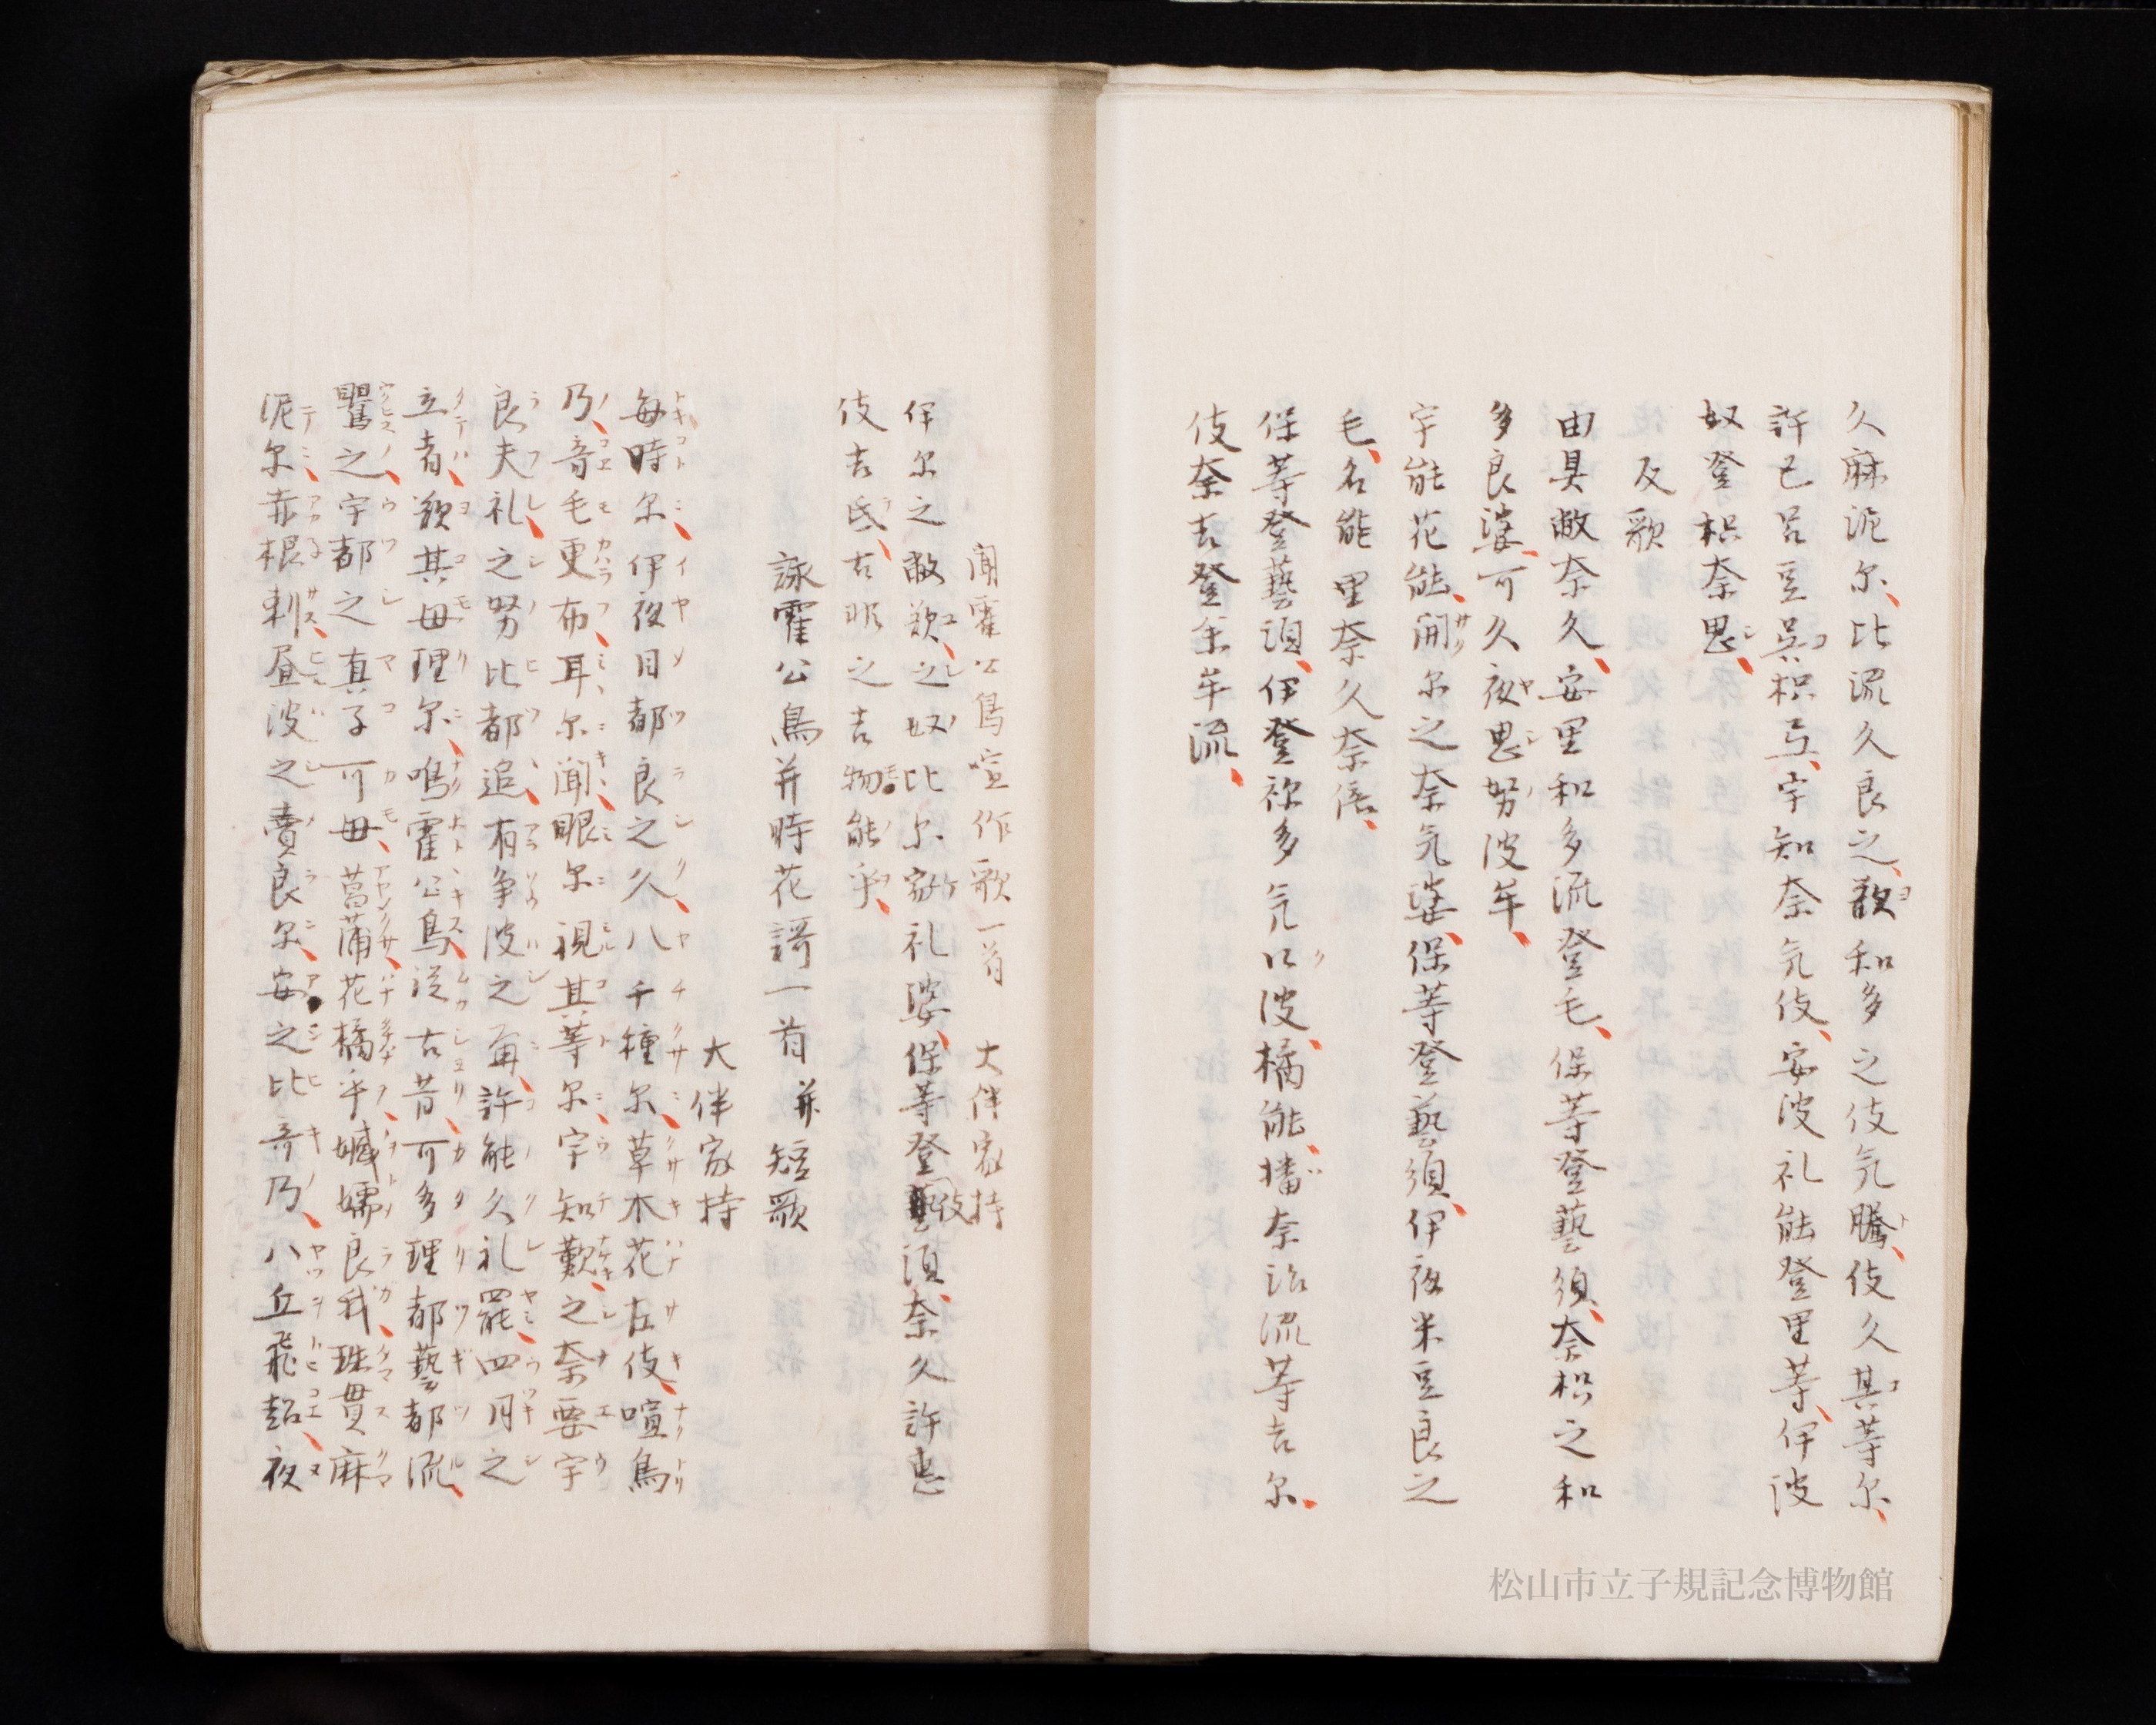 久麻泥尓、比流久良之、歟和多之伎氣騰、伎久其等尓、
許己呂豆呉枳弖、宇知奈氣伎、安波礼能登里等、伊波
奴登枳奈思、
反歌
由具敝奈久、安里和多流登毛、保等登藝須、奈枳之和
多良婆、可久夜思努波牟、
宇能花能、開尓之奈氣婆、保等登藝須、伊夜米豆良之
毛、名能里奈久奈倍、
保等登藝須、伊登祢多氣口波、橘能、播奈治流等吉尓、
伎奈吉登余牟流、
聞霍公鳥喧作歌一首 大伴家持
伊尓之敝歟、之奴比尓家礼婆、保等登伎須、奈久許恵
伎吉氐、古昵之吉物能乎、
詠霍公鳥并時花謌一首 并短歌
大伴家持
毎時尓、伊夜目都良之久、八千種尓、草木花左伎、喧鳥
乃、音毛更布、耳尓聞、眼尓視其等尓、宇知歎、之奈要宇
良夫礼、之努比都追、有争波之尓、許能久礼罷、四月之
立者、歟其母理尓、鳴霍公鳥、従古昔、可多理都藝都流、
鸎之、宇都之真子可母、菖蒲、花橘乎、嬢嬬良我、珠貫麻
泥尓、赤根刺、昼波之賣良尓、安之比奇乃、八丘飛超、夜
松山市立子規記念博物館